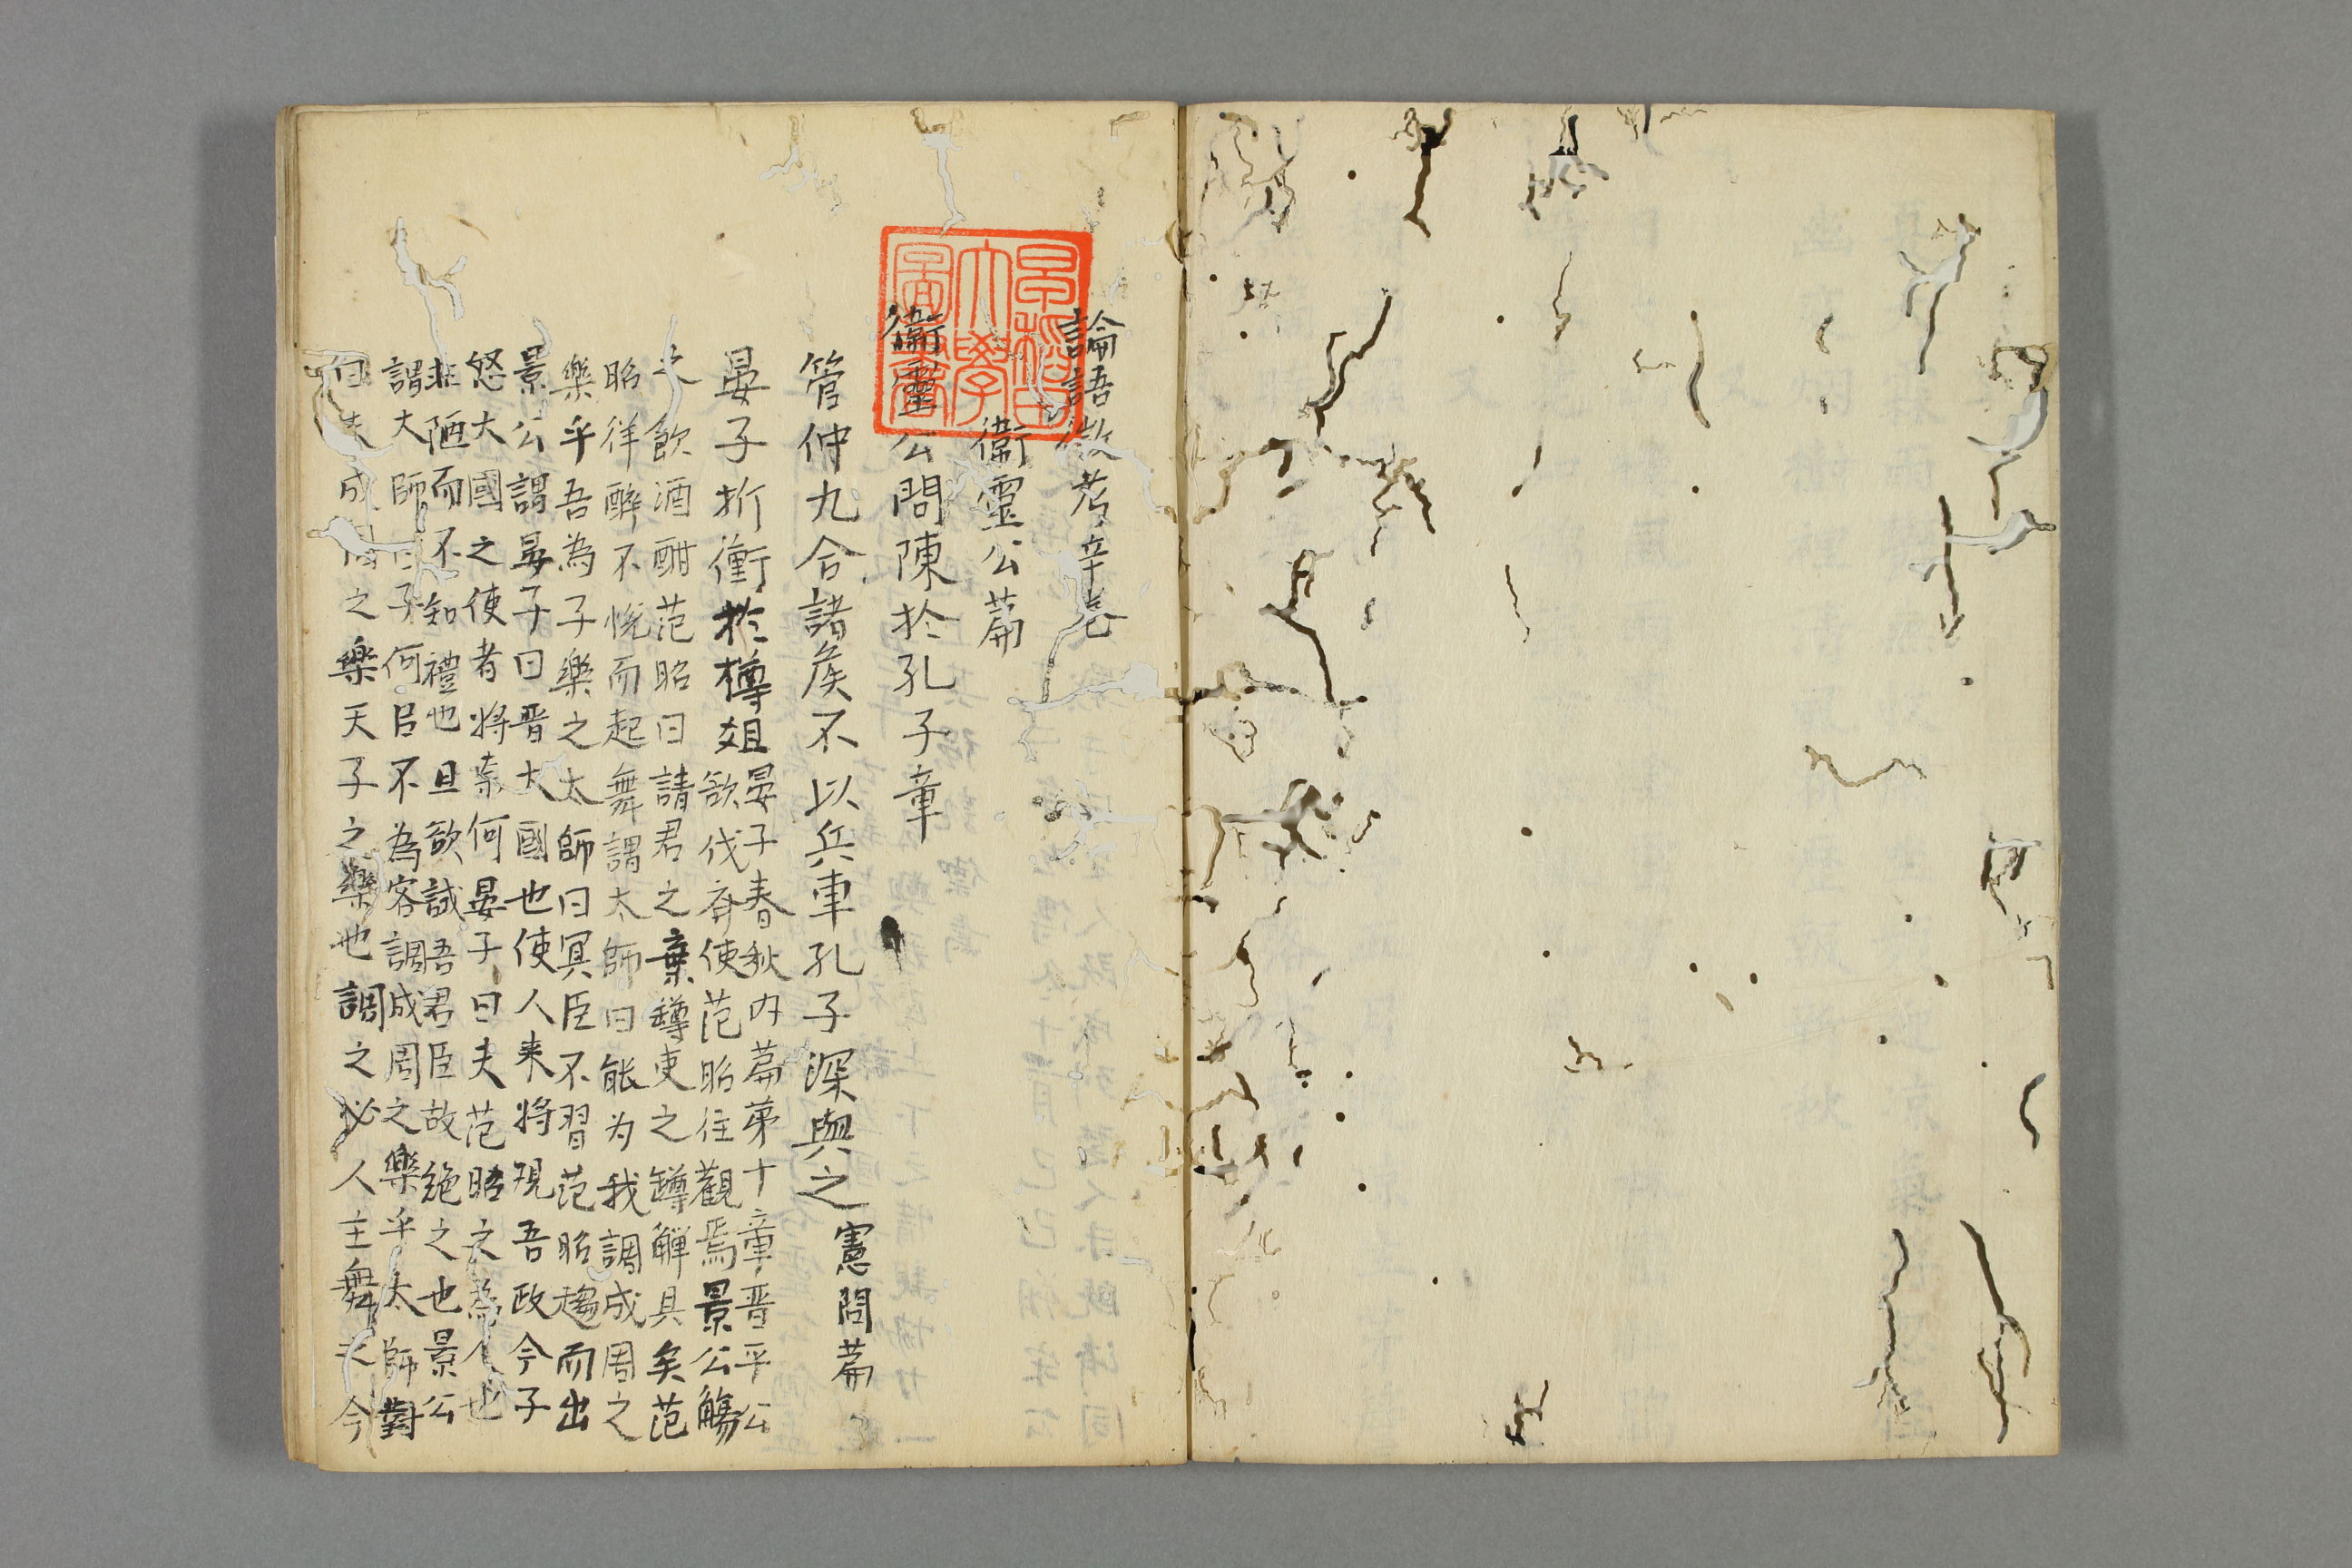 論語徴考 辛
衞靈公篇
衞靈公問陳於孔子章
管仲九合諸矦不以兵車孔子深與之 憲問篇
晏子折衝於樽俎 晏子春秋内篇苐十章晋平公
欲伐斉使范昭往觀焉景公觴
之飲酒酣范昭曰請君之棄罇更之罇觶具矣范
昭佯醉不悦而起舞謂太師曰能为我調成周之
樂乎吾為子樂之太師曰冥臣不習范昭趨而出
景公謂晏子曰晋大國也使人来将現吾政今子
怒大國之使者将柰何晏子曰夫范昭之為人也
非陋而不知禮也且欲試吾君臣故絶之也景公
謂大師曰子何㠯不為客調成周之樂乎太師對
曰夫成周之樂天子之樂也調之必人主舞之今
早稲田大學圖書